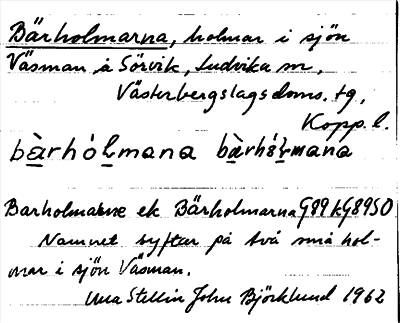 Bärholmarna, holmar i sjön
Väsman å Sörvik, Ludvika sn,
Västerbergslags doms. tg,
Kopp. l.
bàrhólmana bàrhólmana
Barholmarne ek Bärholmarna G89 kG89SO
Namnet syftar på två små hol-
mar i sjön Väsman.
Stellin John Björklund 1962